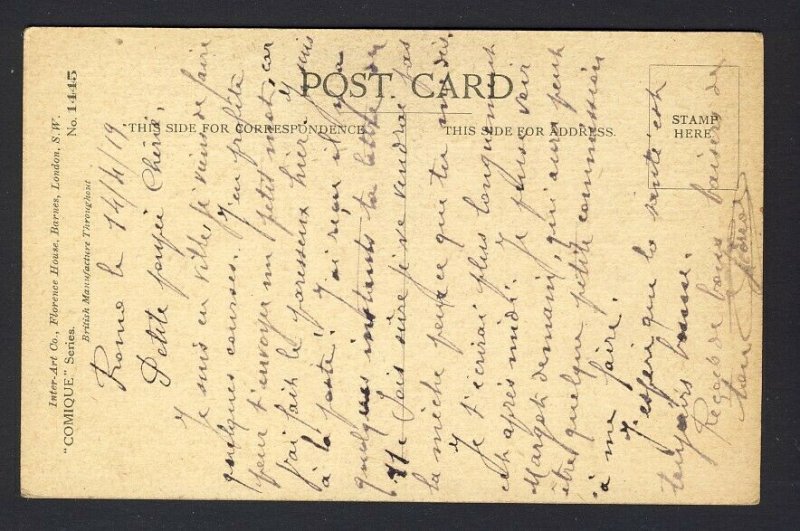 Inter-Art Co., Florence House, Barnes, London, S.W.
"COMIQUE" Series. No. 1445
British Manufacture Throughout
POST CARD
"THIS SIDE FOR CORRESPONDENCE.
THIS SIDE FOR ADDRESS.
STAMP
HERE.
Rome le 14/4/19
Petite poupée Chérie,
Je suis en ville, je viens de faire
quelques courses. J'en profite
pour t'envoyer un petit mot, car
j'ai fait le paresseux hier. Je suis
à la poste. J'ai reçu il y a
quelques instants ta lettre du
Sois sûre je ne vendrai pas
la mèche
Je t'écrirai plus longuement
cet après midi. Je pense voir
Margot demain, qui aura peut
être quelque petite commission
à me faire.
J'espère que la santé est
toujours bonne.
Reçois de bons baisers de
ton